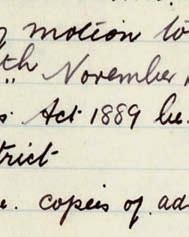 motion to
th November
Act 1889 be
trict
copies of ad